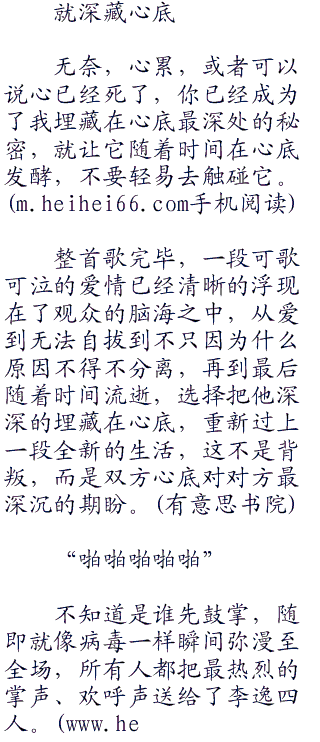 就深藏心底
无奈，心累，或者可以
说心已经死了，你已经成为
了我埋藏在心底最深处的秘
密，就让它随着时间在心底
发酵，不要轻易去触碰它。
(m.heihei66.com手机阅读)
整首歌完毕，一段可歌
可泣的爱情已经清晰的浮现
在了观众的脑海之中，从爱
到无法自拔到不只因为什么
原因不得不分离，再到最后
随着时间流逝，选择把他深
深的埋藏在心底，重新过上
一段全新的生活，这不是背
叛，而是双方心底对对方最
深沉的期盼。(有意思书院)
“啪啪啪啪啪”
不知道是谁先鼓掌，随
即就像病毒一样瞬间弥漫至
全场，所有人都把最热烈的
掌声、欢呼声送给了李逸四
人。(www.he